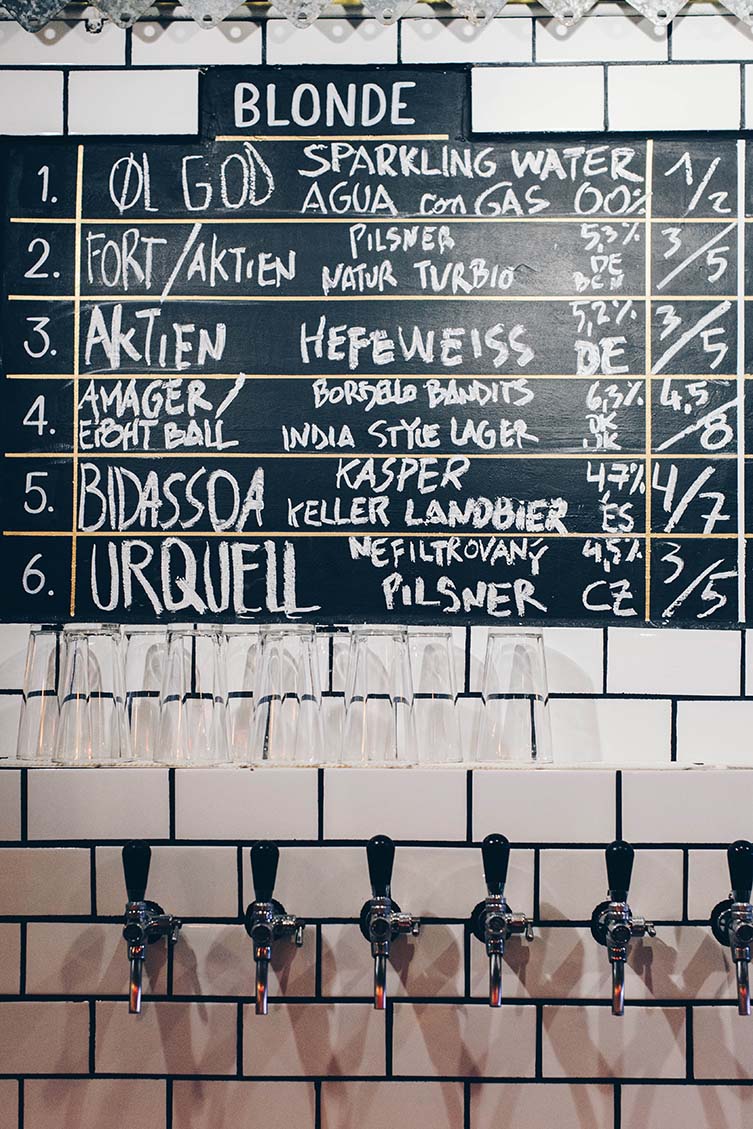 BLONDE
1. ØL GOD SPARKLING WATER 1/2
AGUA con GAS 00%
2. FORT/AKTIEN PILSNER 5,3% 3/5
NATUR TURBIO DE
BCN
3. AKTIEN HEFEWEISS 5,2% 3/5
DE
4. AMAGER/ BORDELLO BANDITS 6,3% 4,5/8
EIGHT BALL INDIA STYLE LAGER DK
DK
5. BIDASSOA KASPER 4,7% 4/7
KELLER LANDBIER ES
6. URQUELL NEFILTROVANÝ 4,5% 3/5
PILSNER CZ